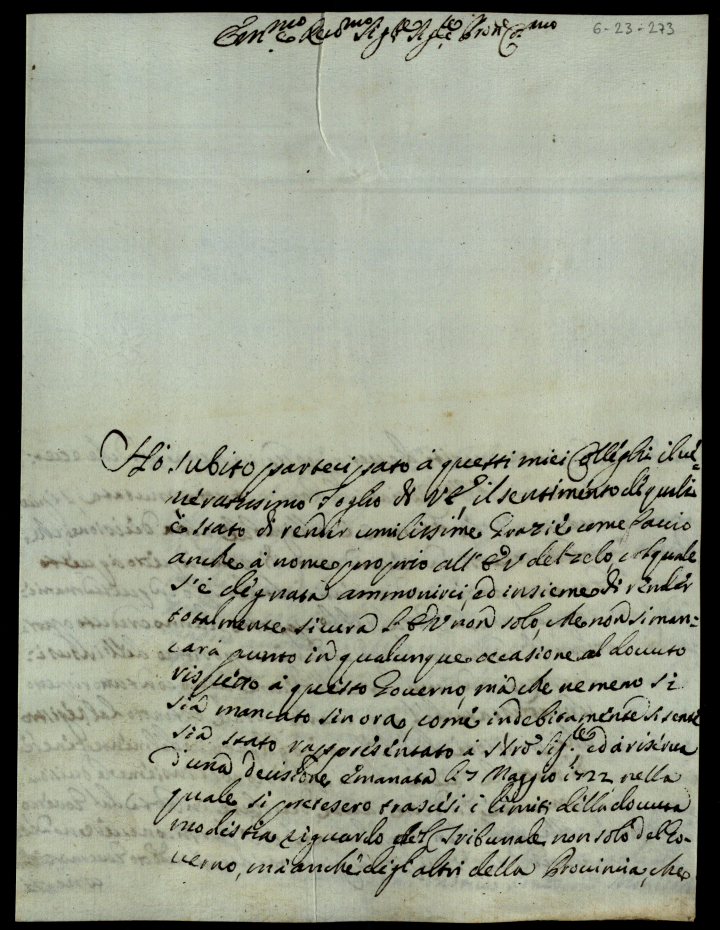 Em.mo e Rev.mo Sig.re Sig.re e Pron. Col.mo
6-23-273
Hò subito partecipato à questi miei Colleghi il ve=
neratissimo Foglio di V.E., il sentimento de quali
è stato di render umilissime Grazie come faccio
anche à nome proprio all' E.V. del zelo, col quale
s'è degnata ammonirci, ed insieme di render
totalmente sicura l'E.V. non solo, che non si man=
carà punto in qualunque occasione al dovuto
rispetto à questo Governo, mà che nemeno si
sia mancato sin ora, come indebitamente si sente
sia stato rappresentato à
ed à riserva
d'una decisione emanata li 7 Maggio 1722 nella
quale si pretesero trascesi i limiti della dovuta
modestia riguardo del Tribunale non solo del Go=
verno, mà anche degl'altri della Provincia, che